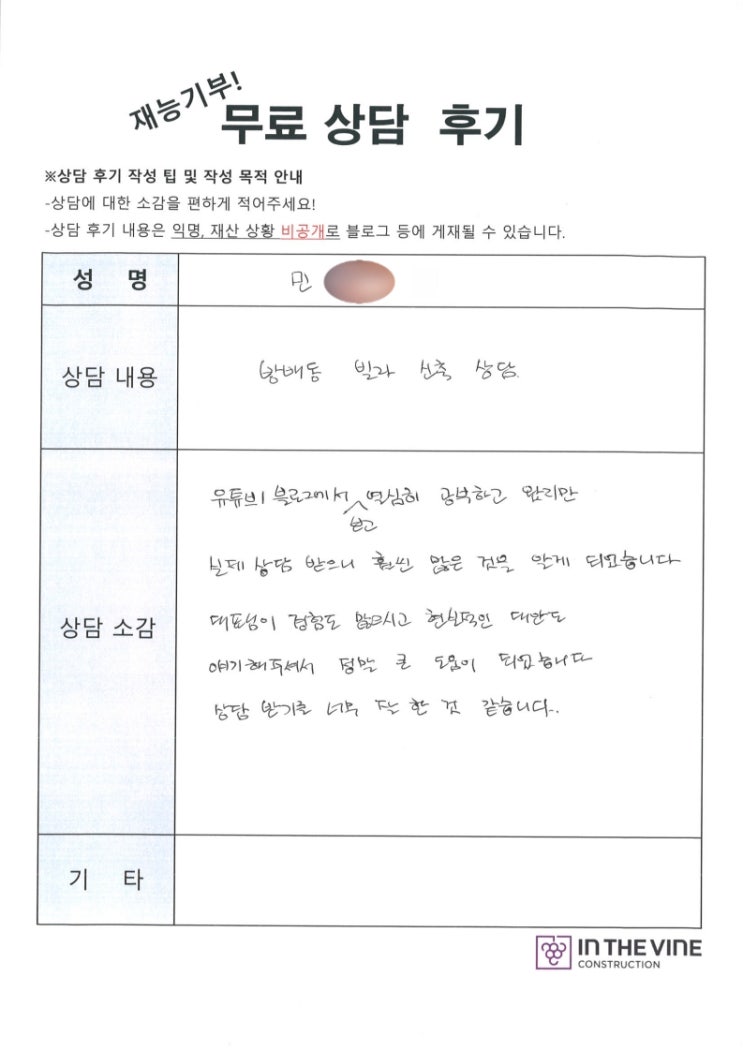 재능기부!
무료 상담 후기
※상담 후기 작성 팁 및 작성 목적 안내
-상담에 대한 소감을 편하게 적어주세요!
-상담 후기 내용은 익명, 재산 상황 비공개로 블로그 등에 게재될 수 있습니다.
성 명 민
상담 내용 방배동 빌라 신축 상담.
유튜브나 블로그에서 보고 열심히 공부하고 왔지만
실제 상담 받으니 훨씬 많은 것을 알게 되었습니다
상담 소감 대표님이 경험도 많으시고 현실적인 대안도
얘기해주셔서 정말 큰 도움이 되었습니다
상담 받기를 너무 잘 한 것 같습니다..
기 타
IN THE VINE
CONSTRUCTION